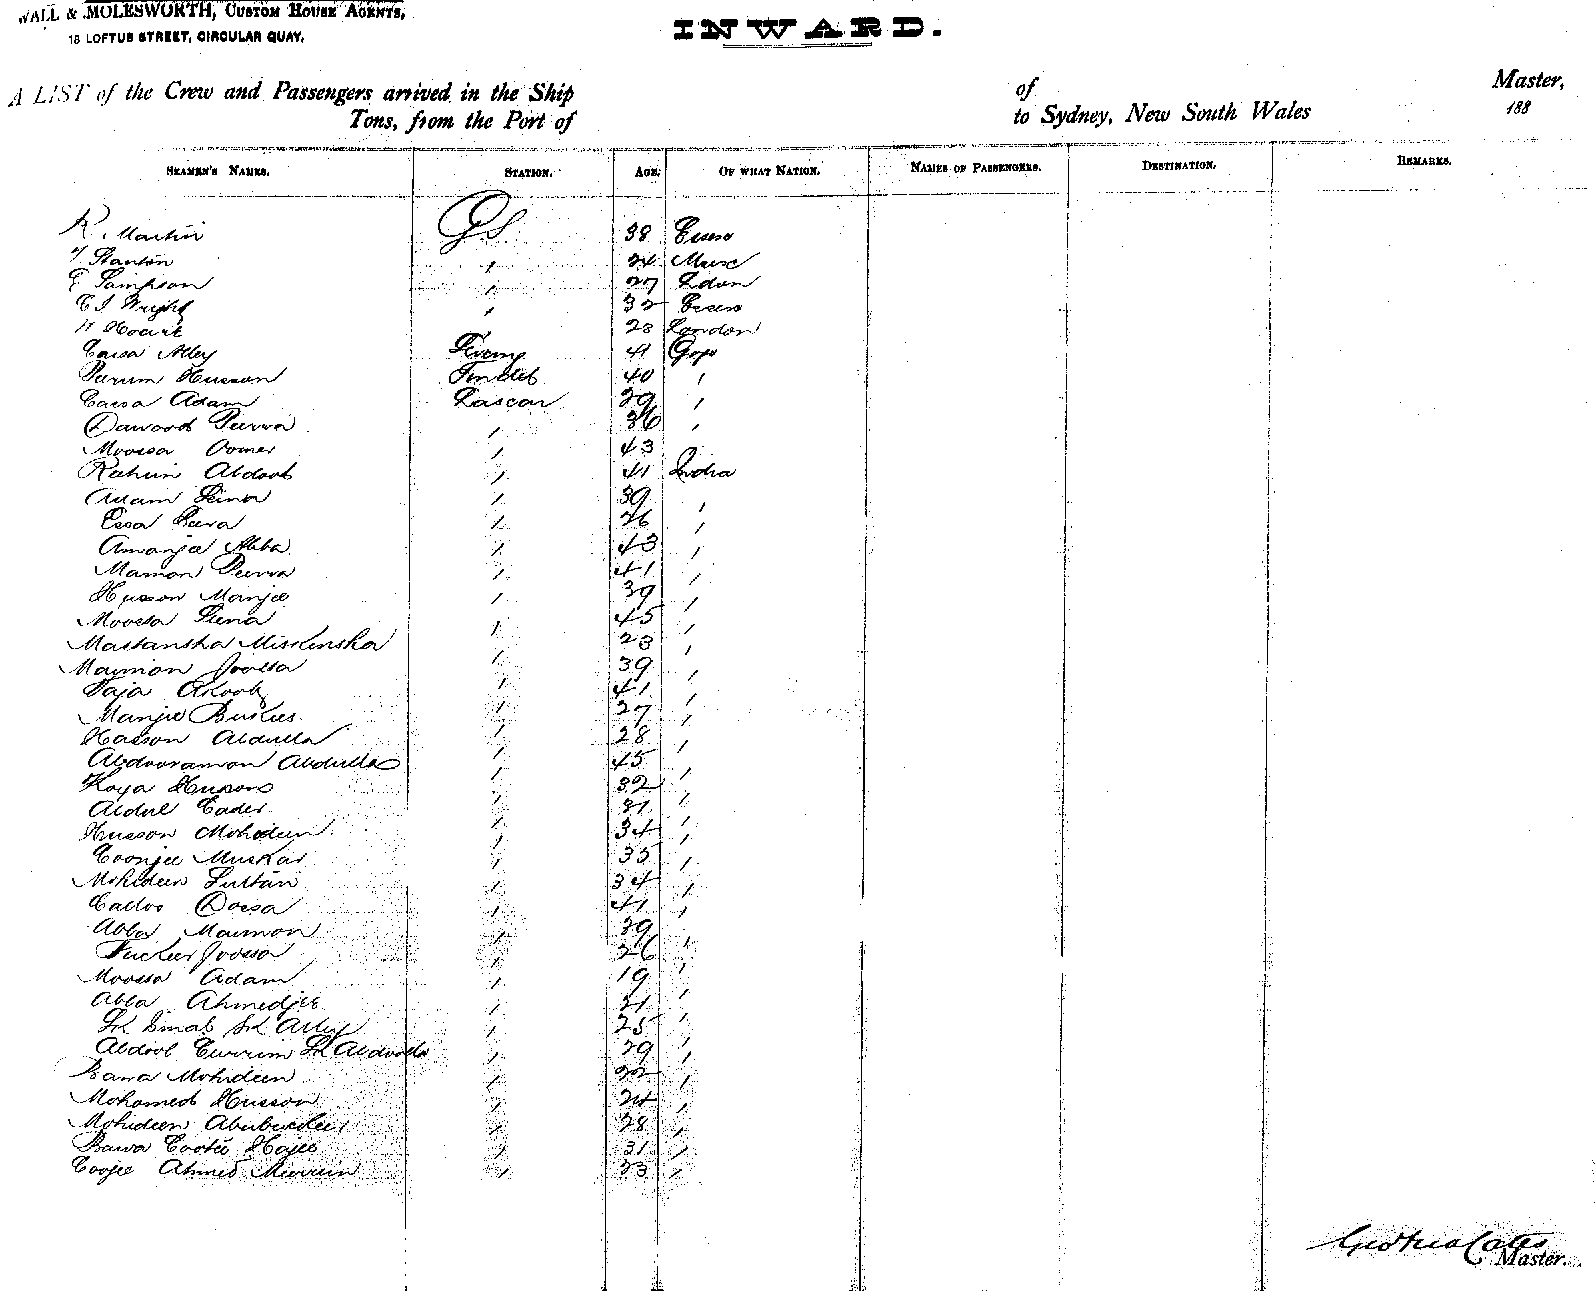 WALL & MOLESWORTH, CUSTOM HOUSE AGENTS,
18 LOFTUS STREET, CIRCULAR QUAY.
INWARD.
A LIST of the Crew and Passengers arrived in the Ship of Master,
Tons, from the Port of to Sydney, New South Wales 188
SEAMEN'S NAMES. STATION. AGE. OF WHAT NATION. NAMES OF PASSENGERS. DESTINATION. REMARKS.
R. Martin GS 38 Essex
Stanton " 24
E Sampson " 27
C J Wright " 32 Essex
H 23 London
Eassa Alley 41 Gogo
Purum Husson Tindal 40 "
Eassa Adam Lascar 29 "
Dawood Peerva " 36 "
Moossa Oomer " 43
Rahim Abdool " 41 India
Adam " 39 "
Essa " 26 "
Amanja Abba " 43 "
Mamon Peerva " 41 "
Husson Manjee " 39 "
Moossa " 45 "
Mastansha Miskinsha " 23 "
Maymon Joossa " 39 "
" 41 "
Manjee " 27 "
Hasson Abdulla " 28 "
Abdooramon Abdulla " 45 "
Koya Husson " 32 "
Abdul Cader " 31 "
Husson Mohideen " 34 "
Coonjee Muskar " 35 "
Mohideen Sultan " 34 "
Dossa " 41 "
Abba Maymon " 39 "
Joossa " 26 "
Moossa Adam " 19 "
Abba Ahmedjee " 21 "
Sk Sk " 25 "
Abdool Currim Sk Abdoolla " 29 "
Bawa Mohideen " 22 "
Mohamed Husson " 24 "
Mohideen " 28 "
Bawa Hajee " 31 "
Ahmed " 23 "
Master.